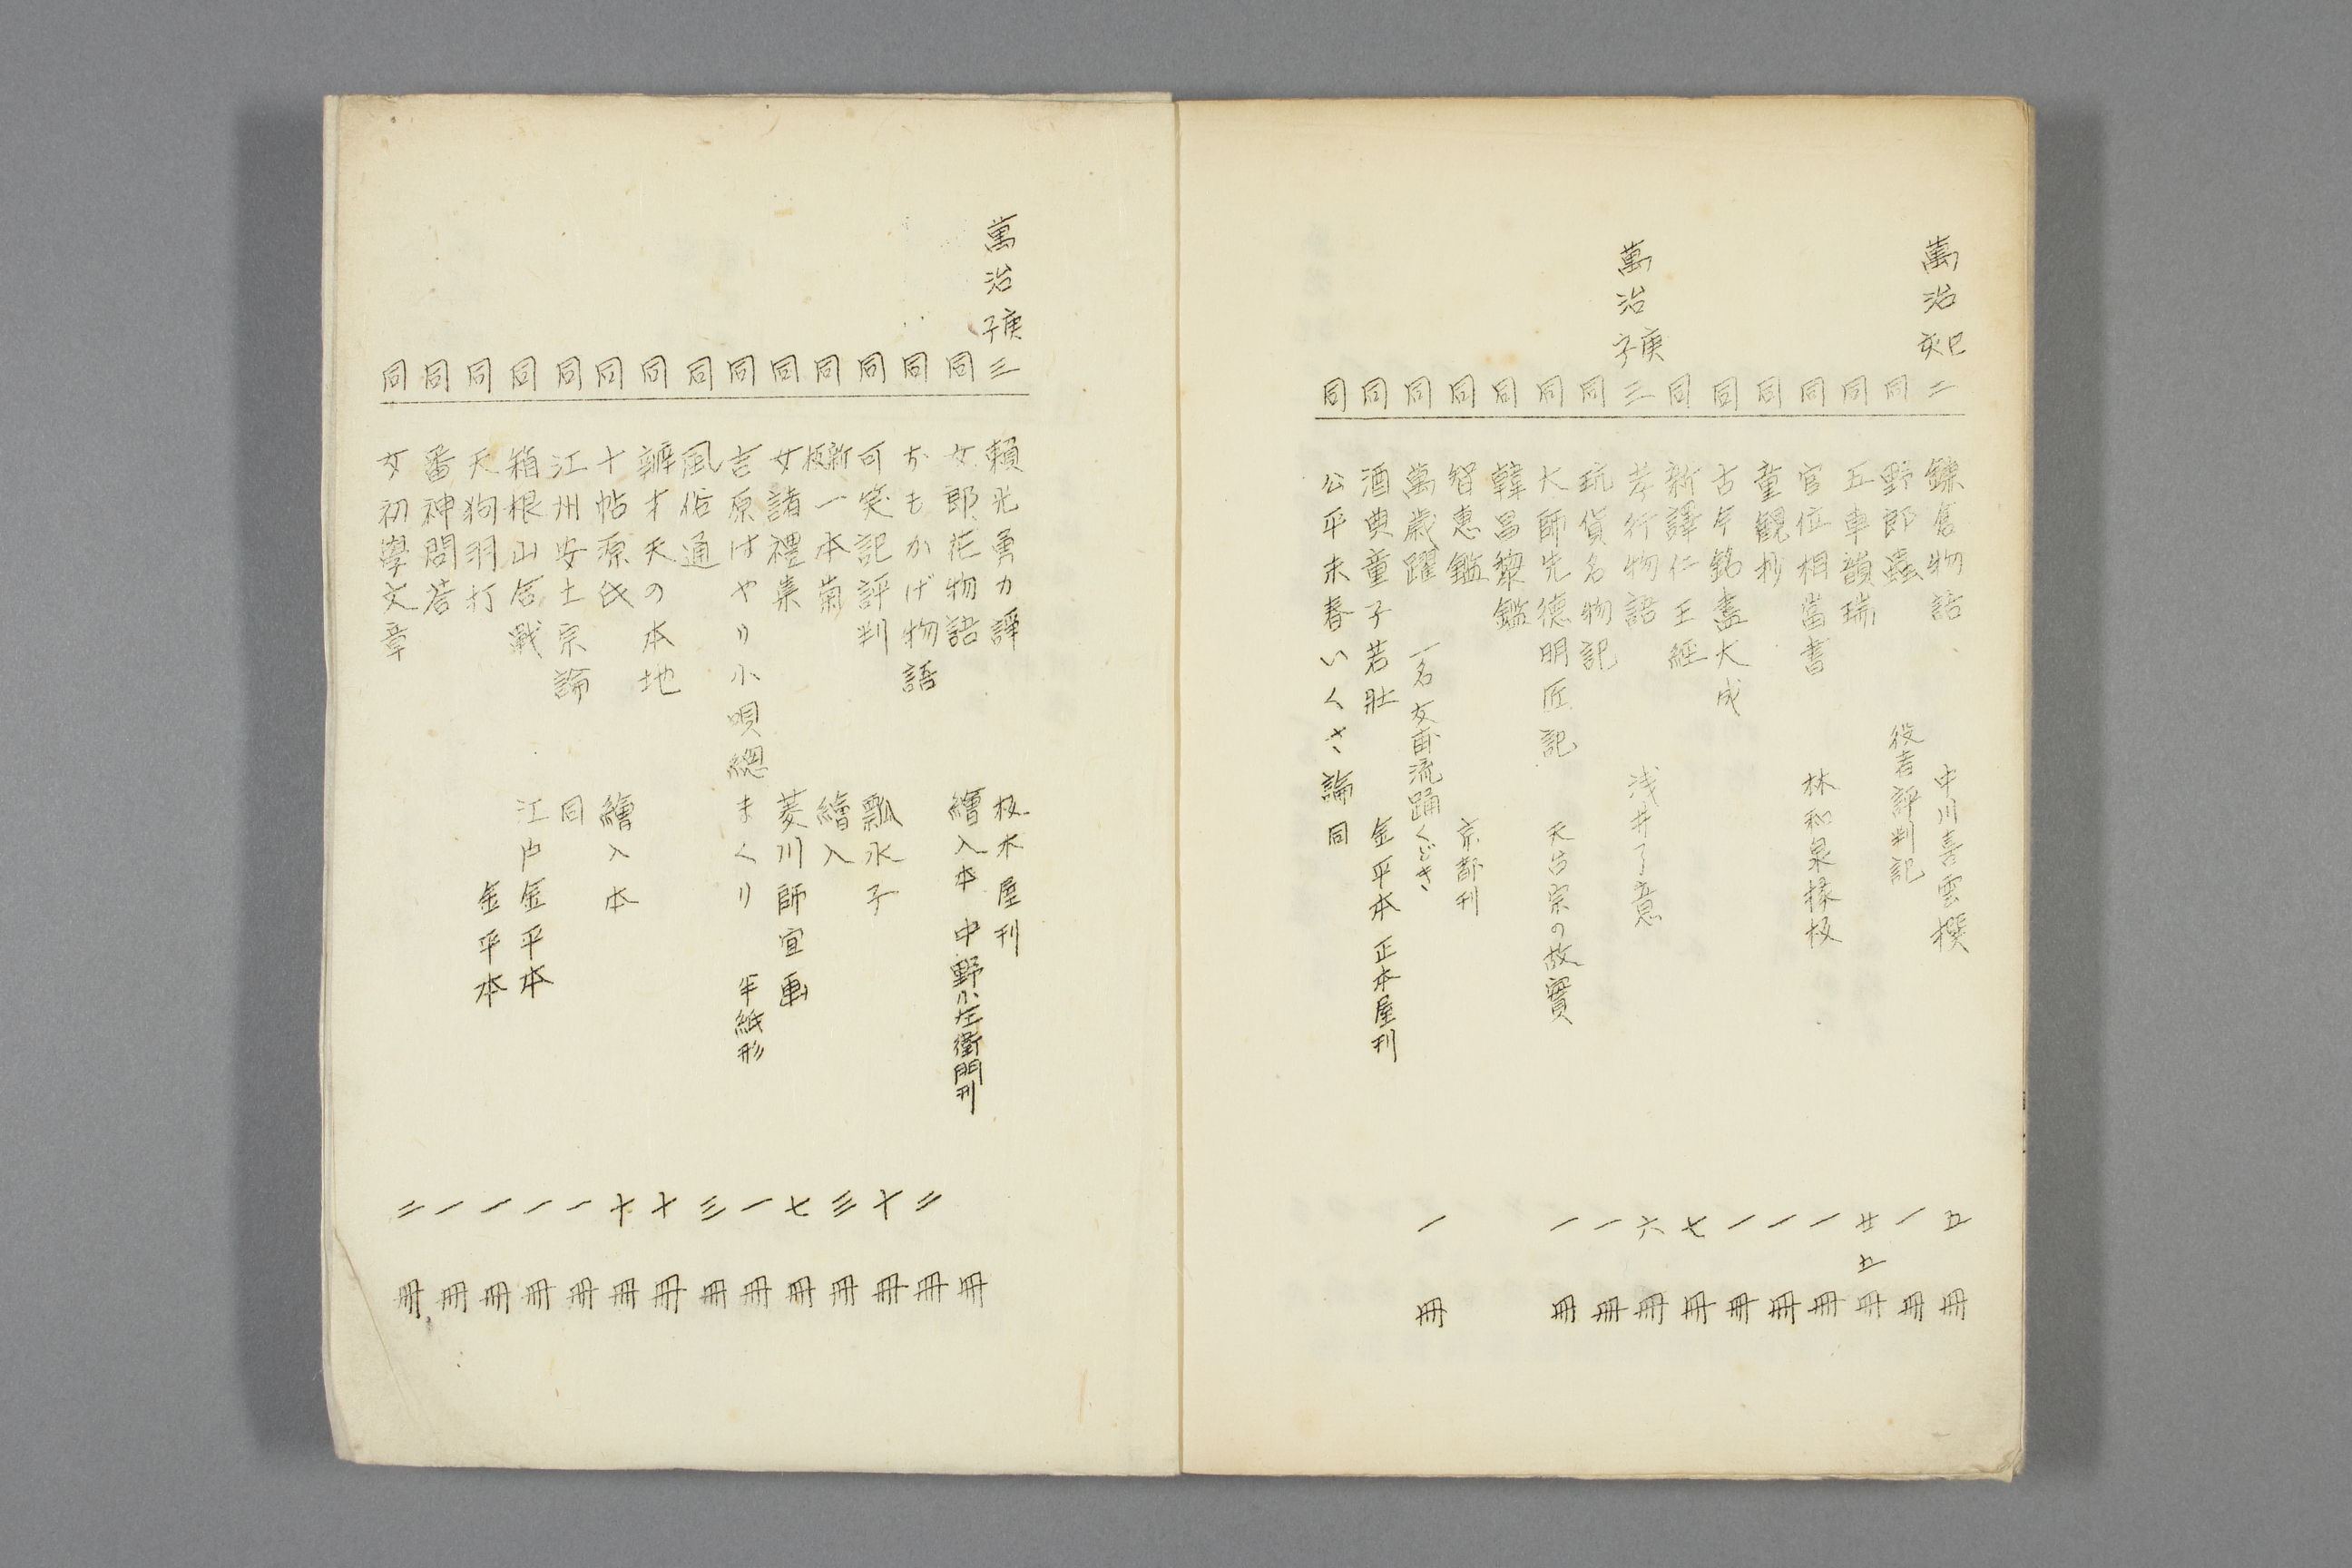 萬治己亥二 鎌倉物語 中川喜雲撰 五冊
同 野郎蟲 役者評判記 一冊
同 五車韻瑞 廿五冊
同 官位相當書 林和泉掾板 一冊
同 童観抄 一冊
同 古今銘盡大成 一冊
同 新譯仁王經 七冊
萬治庚子三 孝行物語 浅井了意 六冊
同 玩貨名物記 一冊
同 大師先德明匠記 天台宗の故實 一冊
同 韓昌黎鑑
同 智恵鑑 京都刊
同 萬歳躍 一名文甫流踊くどき 一冊
同 酒典童子若壯 金平本 正本屋刊
同 公平末春いくさ論 同
萬治庚子三 頼光勇力諍 板木屋刊
同 女郎花物語 繪入本 中野小左衛門刊 冊
同 おもかげ物語 二冊
同 可笑記評判 瓢水子 十冊
同 新板一本菊 繪入 三冊
同 女諸禮集 菱川師宣画 七冊
同 吉原はやり小唄總まくり 半紙形 一冊
同 風俗通 三冊
同 辨才天の本地 十冊
同 十帖源氏 繪入本 十冊
同 江州安土宗論 同 一冊
同 箱根山合戰 江戸金平本 一冊
同 天狗羽打 金平本 一冊
同 番神問荅 一冊
同 女初學文章 二冊